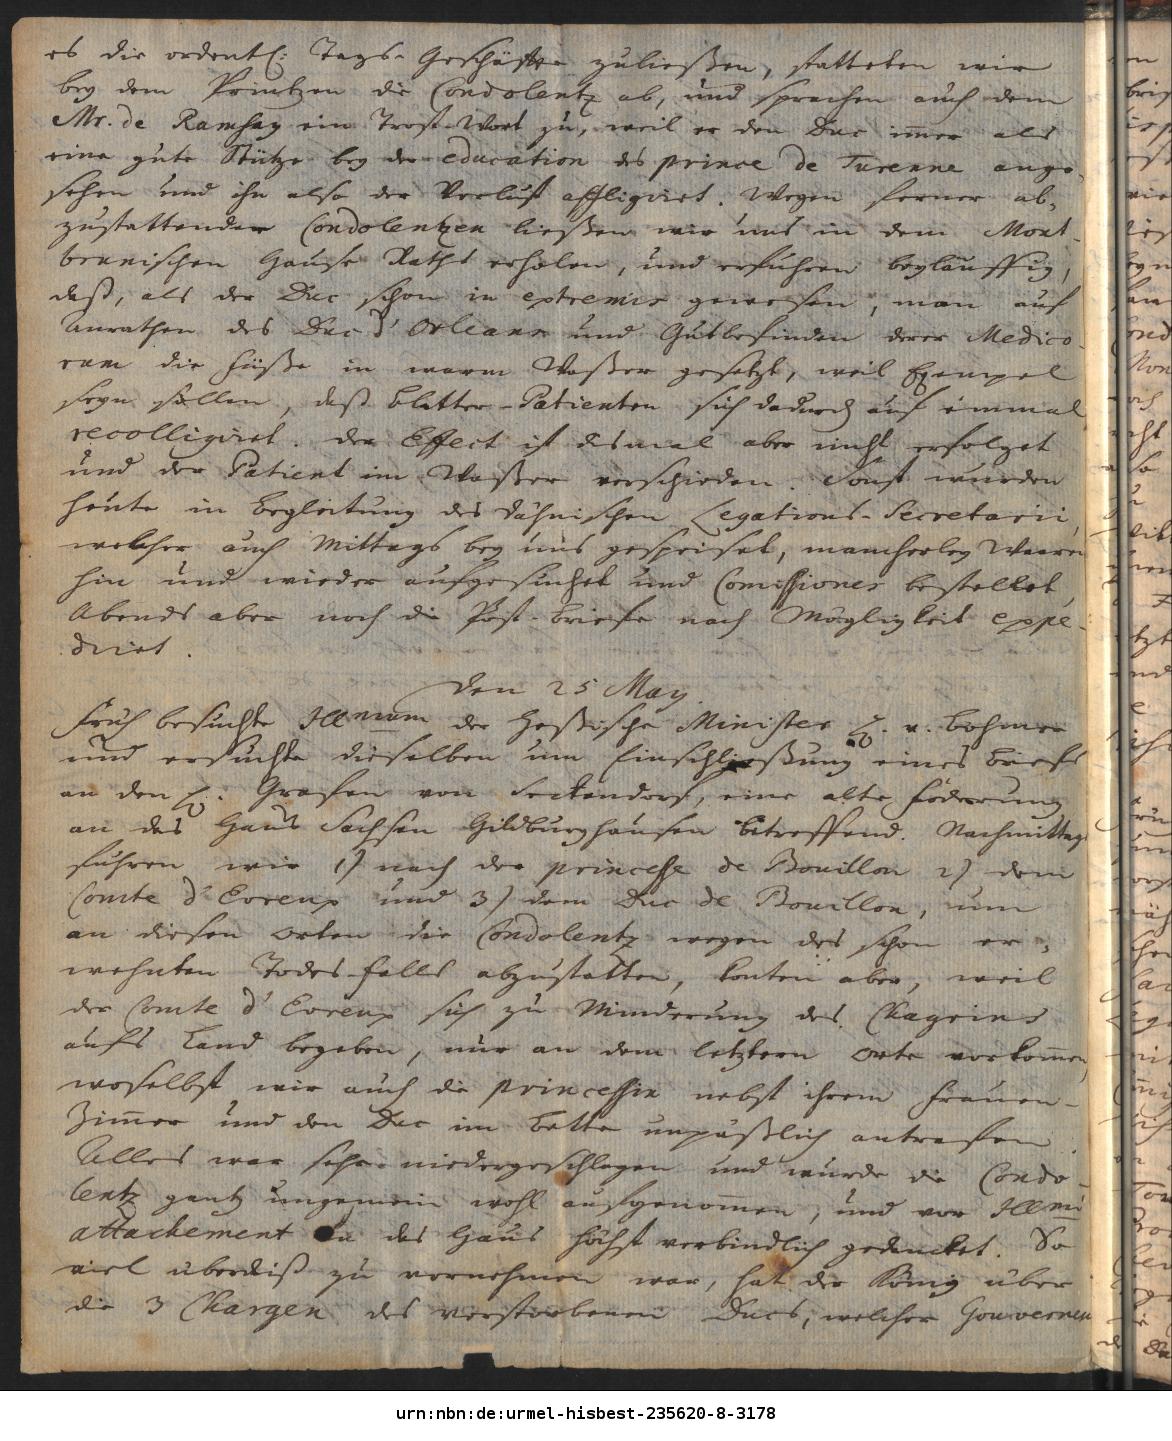 es die ordentl: Tags-Geschäffte zuließen, statteten wir
bey dem Printzen die Condolentz ab, und sprachen auch dem
Mr. de Ramsay ein Trost-Wort zu, weil er den Duc im̄er als
eine gute Stütze bey der education des prince de Turenne ange-
sehen und ihn also der Verlust affligiret. Wegen ferner ab-
zustattender Condolentzen ließen wir uns in dem Mont-
brunischen Hause Raths erholen, und erfuhren beyläuffig,
daß, als der Duc schon in extremis gewesen, man auf
Anrathen des Duc d'Orleans und Gutbefinden derer Medico-
rum die Füße in warm Waßer gesetzt, weil Exempel
seyn sollen, daß blatter-Patienten sich dadurch auf einmal
recolligiret. Der Effect ist dismal aber nicht erfolget
und der Patient im Waßer verschieden. Sonst wurden
heute in begleitung des Dähnischen Legations-Secretarii,
welcher auch Mittags bey uns gespeiset, mancherley Waaren
hin und wieder aufgesuchet und Com̄issiones bestellet,
Abends aber noch die Post-briefe nach Mögligkeit expe-
diret.
Den 25 May.
Früh besuchte Illmum der Heßische Minister H. v. Bohmer
und ersuchte dieselben um Einschließung eines briefs
an den H. Grafen von Seckendorf, eine alte Foderung
an das Haus Sachsen Hildburghausen betreffend. Nachmittag
fuhren wir 1) nach der princesse de Bouillon 2) dem
Comte d'Evreux und 3) dem Duc de Bouillon, um
an diesen Orten die Condolentz wegen des schon er-
wehnten Todes-falls abzustatten, konten aber, weil
der Comte d'Evreux sich zu Minderung des Chagrins
aufs Land begeben, nur an dem letztern Orte vorkom̄en,
woselbst wir auch die princessin nebst ihrem Frauen-
Zim̄er und den Duc im Bette unpäßlich antrafen.
Alles war sehr niedergeschlagen und wurde die Condo-
lentz gantz ungemein wohl aufgenom̄en, und vor Illmi
attachement an das Haus höchst verbindlich gedancket. So
viel überdiß zu vernehmen war, hat der König über
die 3 Chargen des verstorbenen Ducs, welcher Gouverneur